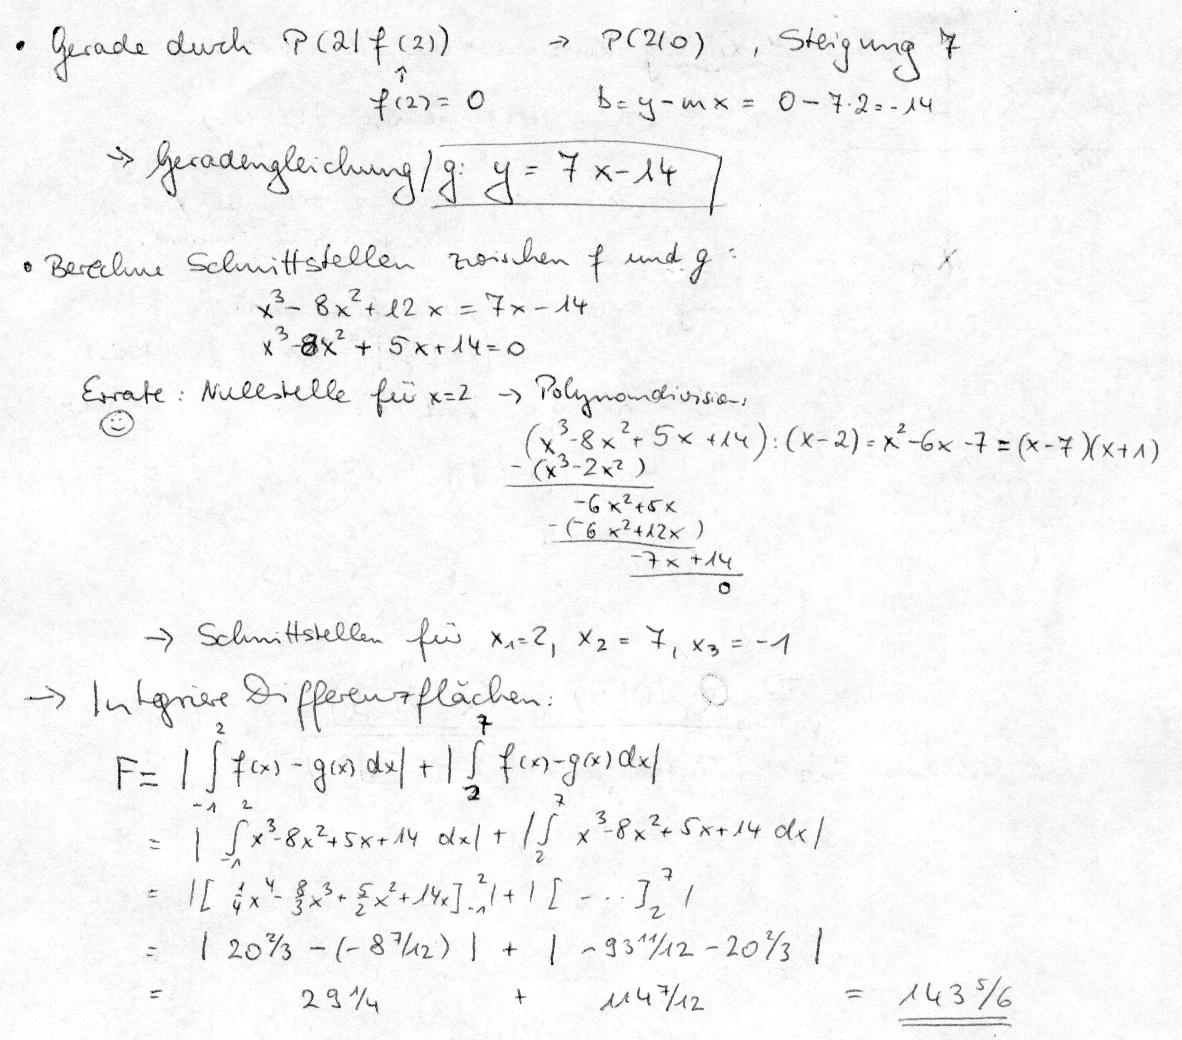 • Gerade durch P(2|f(2)) → P(2|0) , Steigung 7
↑
f(2) = 0 b = y - mx = 0 - 7·2 = -14
→ Geradengleichung g: y = 7x - 14
• Berechne Schnittstellen zwischen f und g:
x³ - 8x² + 12x = 7x - 14
x³ - 8x² + 5x + 14 = 0
Errate: Nullstelle für x=2 → Polynomdivision:
☺
(x³ - 8x² + 5x + 14) : (x-2) = x² - 6x - 7 = (x-7)(x+1)
-(x³ - 2x²)
-6x² + 5x
-(-6x² + 12x)
-7x + 14
0
→ Schnittstellen für x₁ = 2, x₂ = 7, x₃ = -1
→ Integriere Differenzflächen:
F = |∫₋₁² f(x) - g(x) dx| + |∫₂⁷ f(x) - g(x) dx|
= |∫₋₁² x³ - 8x² + 5x + 14 dx| + |∫₂⁷ x³ - 8x² + 5x + 14 dx|
= |[1/4 x⁴ - 8/3 x³ + 5/2 x² + 14x]₋₁²| + |[ - ... ]₂⁷|
= | 20 2/3 - (-8 7/12) | + | -93 11/12 - 20 2/3 |
= 29 1/4 + 114 7/12 = 143 5/6